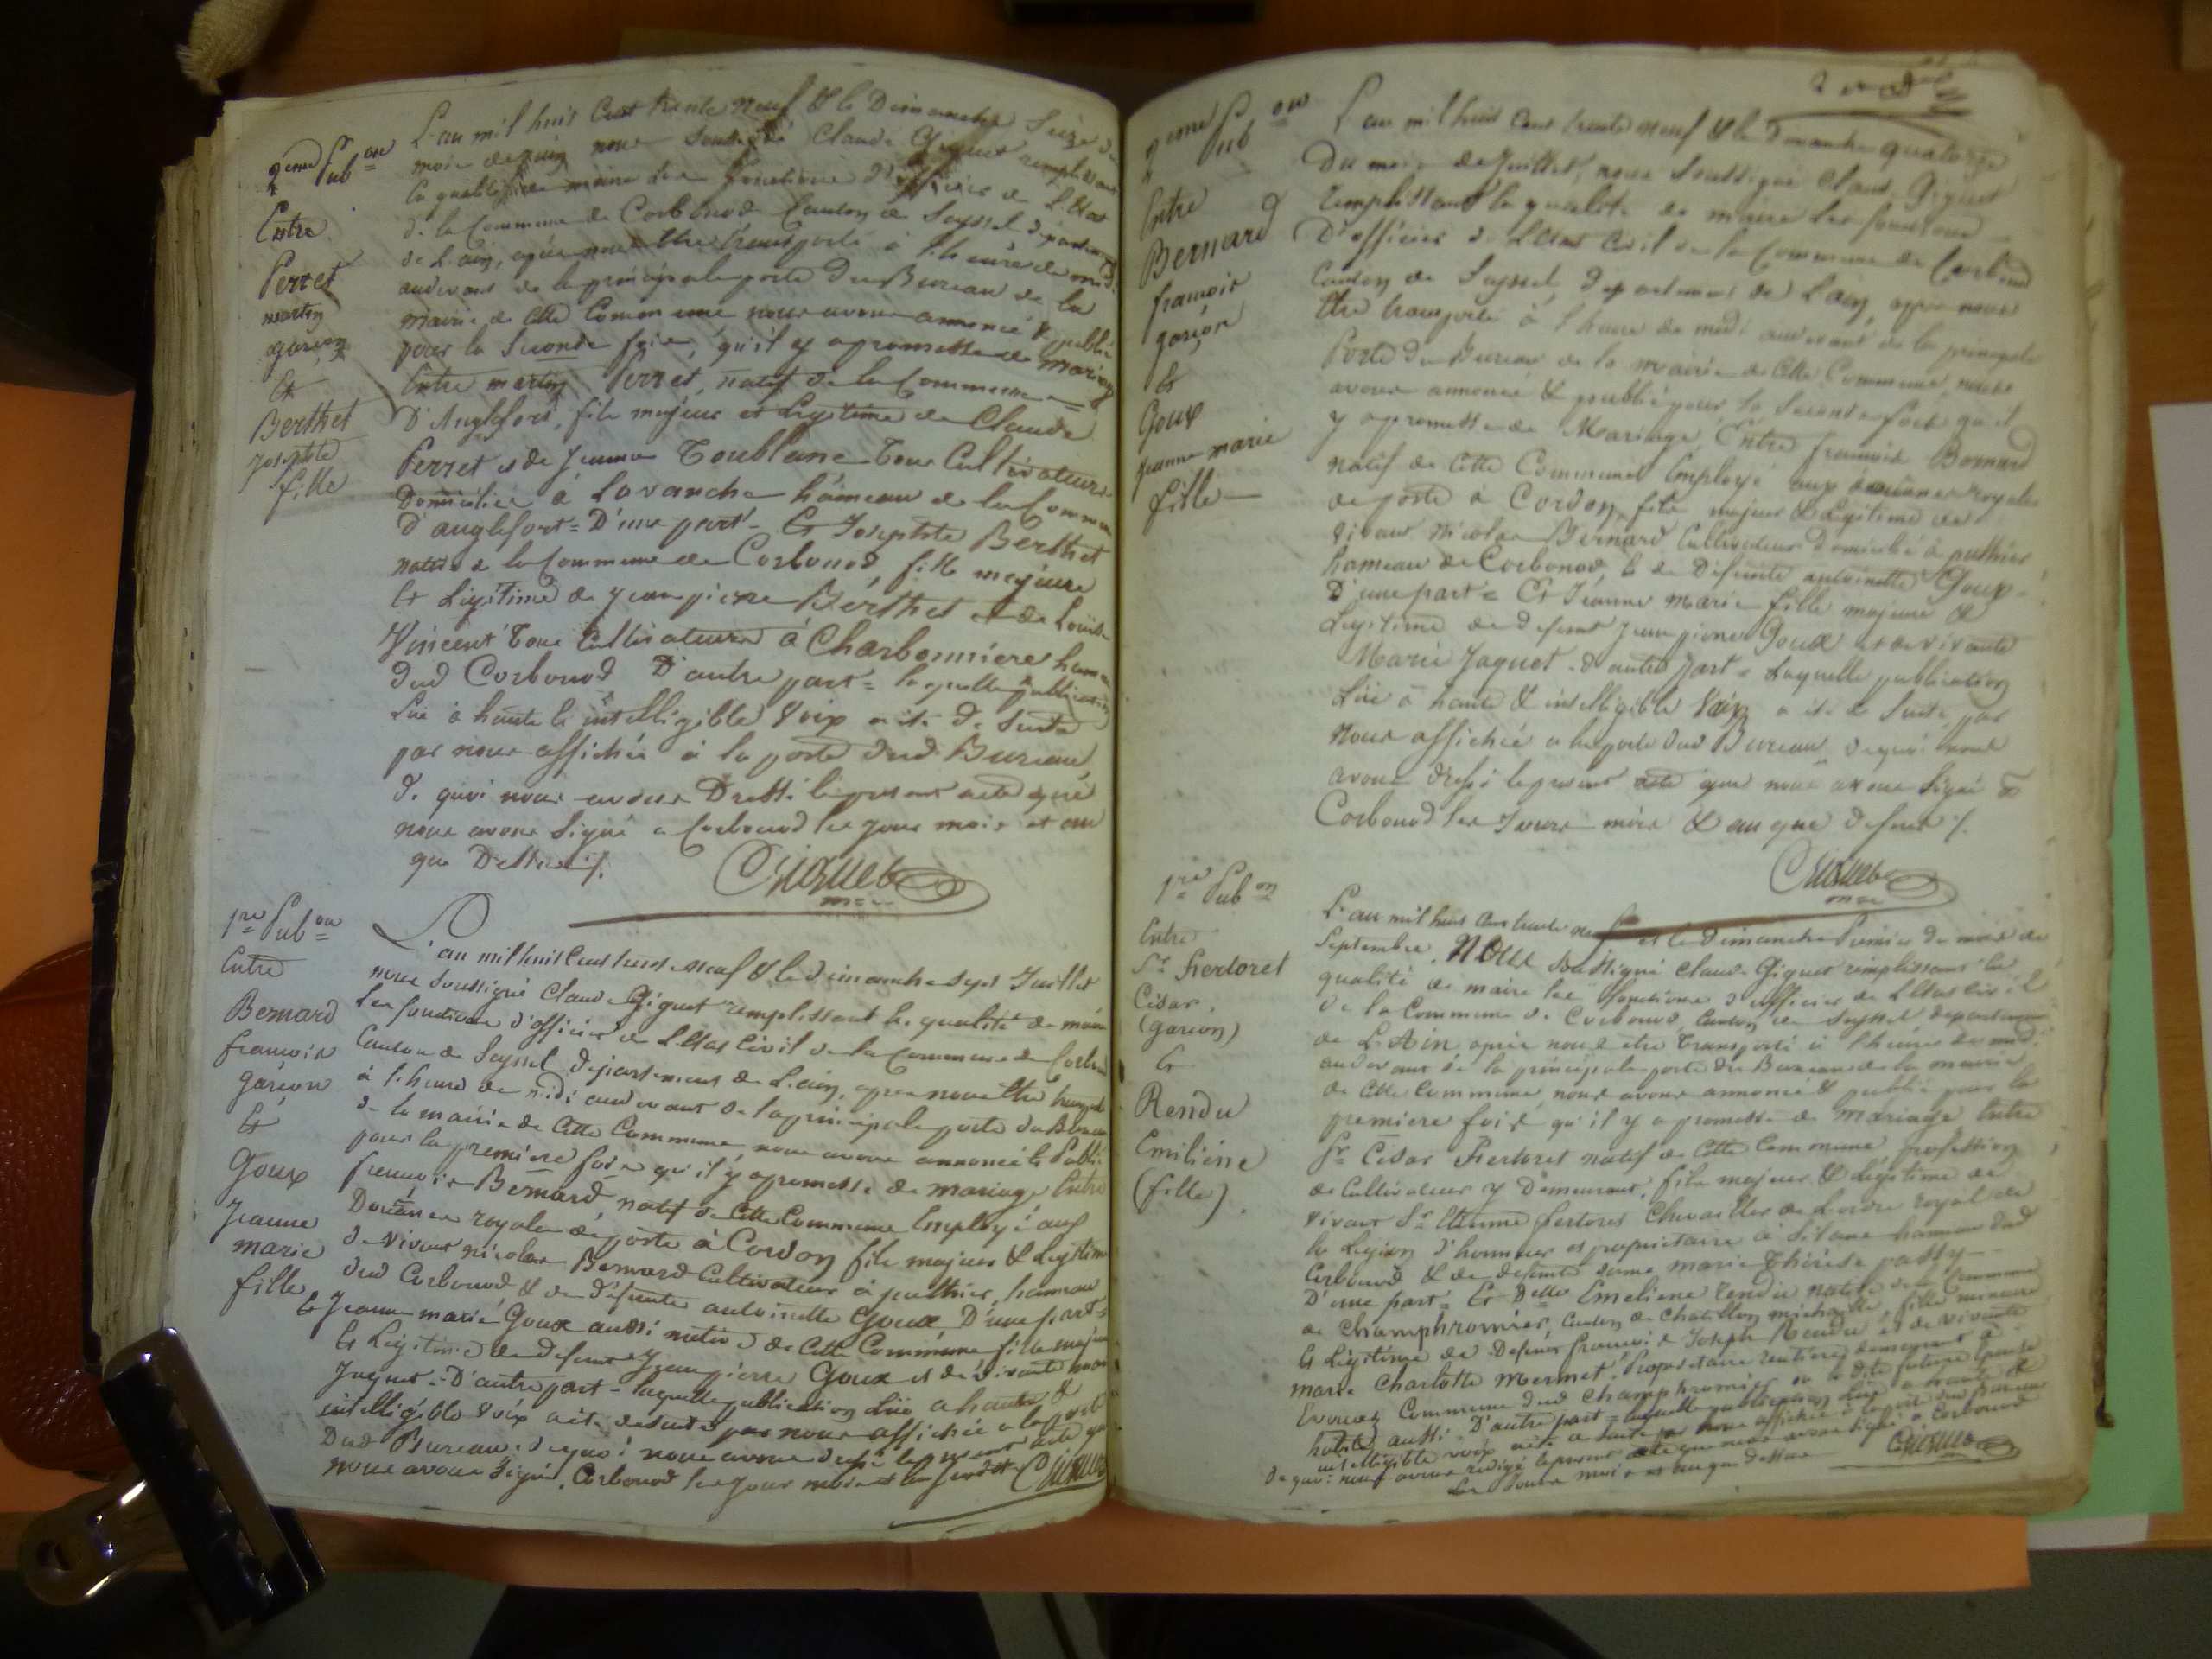 2eme Pub on
Entre
Perret
martin
garçon
Et
Berthet
Josephte
fille
L'an mil huit Cent trente Neuf & le Dimanche Seize du
mois de juin nous soussigné Claude Giguet remplissant
la qualité de maire Les fonctions d'officier de L'Etat
de la Commune de Corbonod Canton de Seyssel département
de L'ain, après nous être transporté à L'heure de midi
audevant de la principale porte du Bureau de la
mairie de Cette Commune nous avons annoncé & publié
pour la Seconde fois, qu'il y a promesse de mariage
Entre martin Perret, natif de la Commune
D'Anglefort, fils majeur et Legitime de Claude
Perret et de Jeanne Toublanc tous Cultivateurs
Domiciliés à Lavanche hameau de la Commune
d'anglefort = D'une part = Et Josephte Berthet
native de la Commune de Corbonod, fille majeure
Et Légitime de Jean pierre Berthet et de Louise
Vincent tous Cultivateurs à Charbonniere hameau
dud Corbonod D'autre part = laquelle publication
Lue à haute & intelligible voix a été de suite
par nous affichée à la porte dud Bureau,
de quoi nous avons Dressé le présent acte que
nous avons Signé à Corbonod les jour mois et an
que Dessus ./.
CGiguet
1re Pub on
Entre
Bernard
françois
garçon
Et
Goux
Jeanne
marie
fille
L'an mil huit Cent trente neuf & le dimanche sept Juillet
nous soussigné Claude Giguet remplissant la qualité de maire
Les fonctions d'officier de L'Etat Civil de la Commune de Corbonod
Canton de Seyssel département de L'ain, après nous être transporté
à L'heure de midi audevant de la principale porte du Bureau
de la mairie de Cette Commune, nous avons annoncé & Publié
pour la première fois qu'il y a promesse de mariage Entre
françois Bernard, natif de Cette Commune Employé aux
Douanes royales de poste à Cordon fils majeur & Legitime
de vivant nicolas Bernard Cultivateur à puthier, hameau
dud Corbonod & de défunte antoinette Goux D'une part =
& Jeanne marie Goux aussi native de Cette Commune fille majeure
Et Légitime de defunt Jean pierre Goux et de vivante marie
Jaquet = D'autre part = laquelle publication Lue a haute &
intelligible voix a été de suite par nous affichée a la porte
Dud Bureau. de quoi nous avons dressé le présent acte que
nous avons Signé. Corbonod les jour mois et an susdit CGiguet
2eme Pub on
Entre
Bernard
françois
garçon
Et
Goux
Jeanne marie
fille
L'an mil huit Cent trente neuf & le dimanche quatorze
Du mois de Juillet, nous Soussigné Claude Giguet
remplissant la qualité de maire Les fonctions
D'officier de L'Etat Civil de la Commune de Corbonod
Canton de Seyssel, département de L'ain, après nous
être transporté à l'heure de midi audevant de la principale
Porte du Bureau de la mairie de Cette Commune, nous
avons annoncé & publié pour la Seconde fois qu'il
y a promesse de Mariage, Entre françois Bernard
natif de Cette Commune Employé aux douanes royales
de poste à Cordon, fils majeur & Légitime de
vivant Nicolas Bernard Cultivateur domicilié à puthier
hameau de Corbonod & de Defunte antoinette Goux
D'une part = Et Jeanne Marie fille majeure &
Legitime de defunt Jean pierre Goux et de vivante
Marie Jaquet. d'autre part = Laquelle publication
Lue à haute & intelligible voix a été de suite par
Nous affichée a la porte dud Bureau de quoi nous
avons dressé le présent acte que nous avons Signé à
Corbonod les Jours mois & an que dessus ./.
CGiguet
1re Pub on
Entre
Sr Fertoret
César,
(garçon)
Et
Rendu
Emiliene
(fille)
L'an mil huit Cent trente neuf et le dimanche Premier du mois de
Septembre, Nous soussigné Claude Giguet remplissant la
qualité de maire les fonctions d'officier de L'Etat Civil
de la Commune de Corbonod, Canton de Seyssel département
de L'Ain, après nous être transporté à l'heure de midi
audevant de la principale porte du Bureau de la mairie
de Cette Commune, nous avons annoncé & publié pour la
première fois qu'il y a promesse de mariage Entre
Sr César Fertoret natif de Cette Commune, profession
de Cultivateur y Demeurant, fils majeur & Légitime de
vivant Sr Etienne fertoret Chevallier de L'ordre royal de
la Légion d'honneur et propriétaire à Silane hameau dud
Corbonod & de defunte dame marie thérèse passy
D'une part = Et Delle Emeliene rendu native de la Commune
de Champhromier, Canton de Chatillon michaille, fille mineure
Et Légitime de Defunt françois Joseph Rendu et de vivante
marie Charlotte Mermet. Propriétaire rentière demeurant à
Commune dud Champhromier ou la dite future Epouse
habite aussi. D'autre part = laquelle publication Lue a haute &
intelligible voix a été de suite par nous affichée à la porte dud Bureau
De quoi nous avons rédigé le présent acte que nous avons signé a Corbonod
Les Jours mois et an que dessus
CGiguet